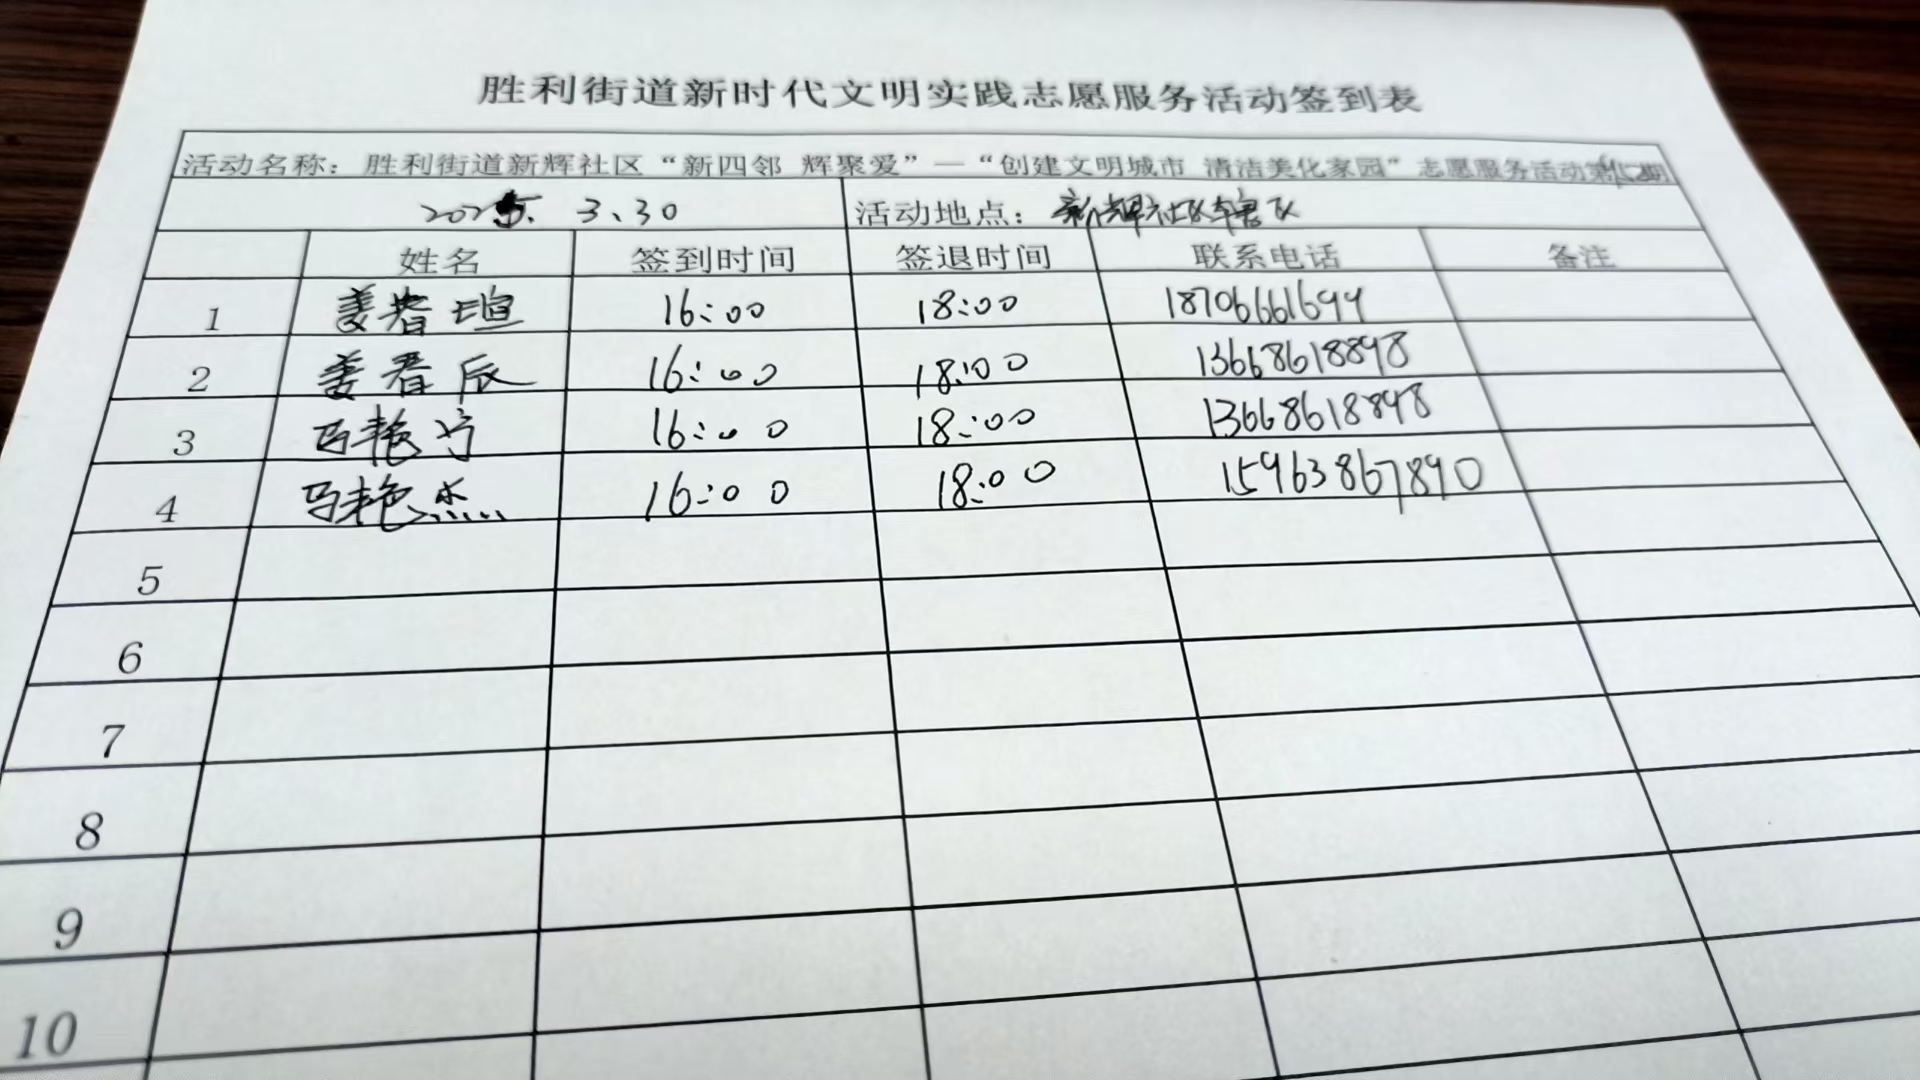 胜利街道新时代文明实践志愿服务活动签到表
活动名称：胜利街道新辉社区“新四邻 辉聚爱”—“创建文明城市 清洁美化家园”志愿服务活动第 期
2025. 3.30 活动地点：新辉社区辖区
姓名 签到时间 签退时间 联系电话 备注
1 姜 瑄 16:00 18:00 18706661699
2 姜 辰 16:00 18:00 13668618898
3 马艳宁 16:00 18:00 13668618898
4 马艳杰 16:00 18:00 15963867890
5
6
7
8
9
10